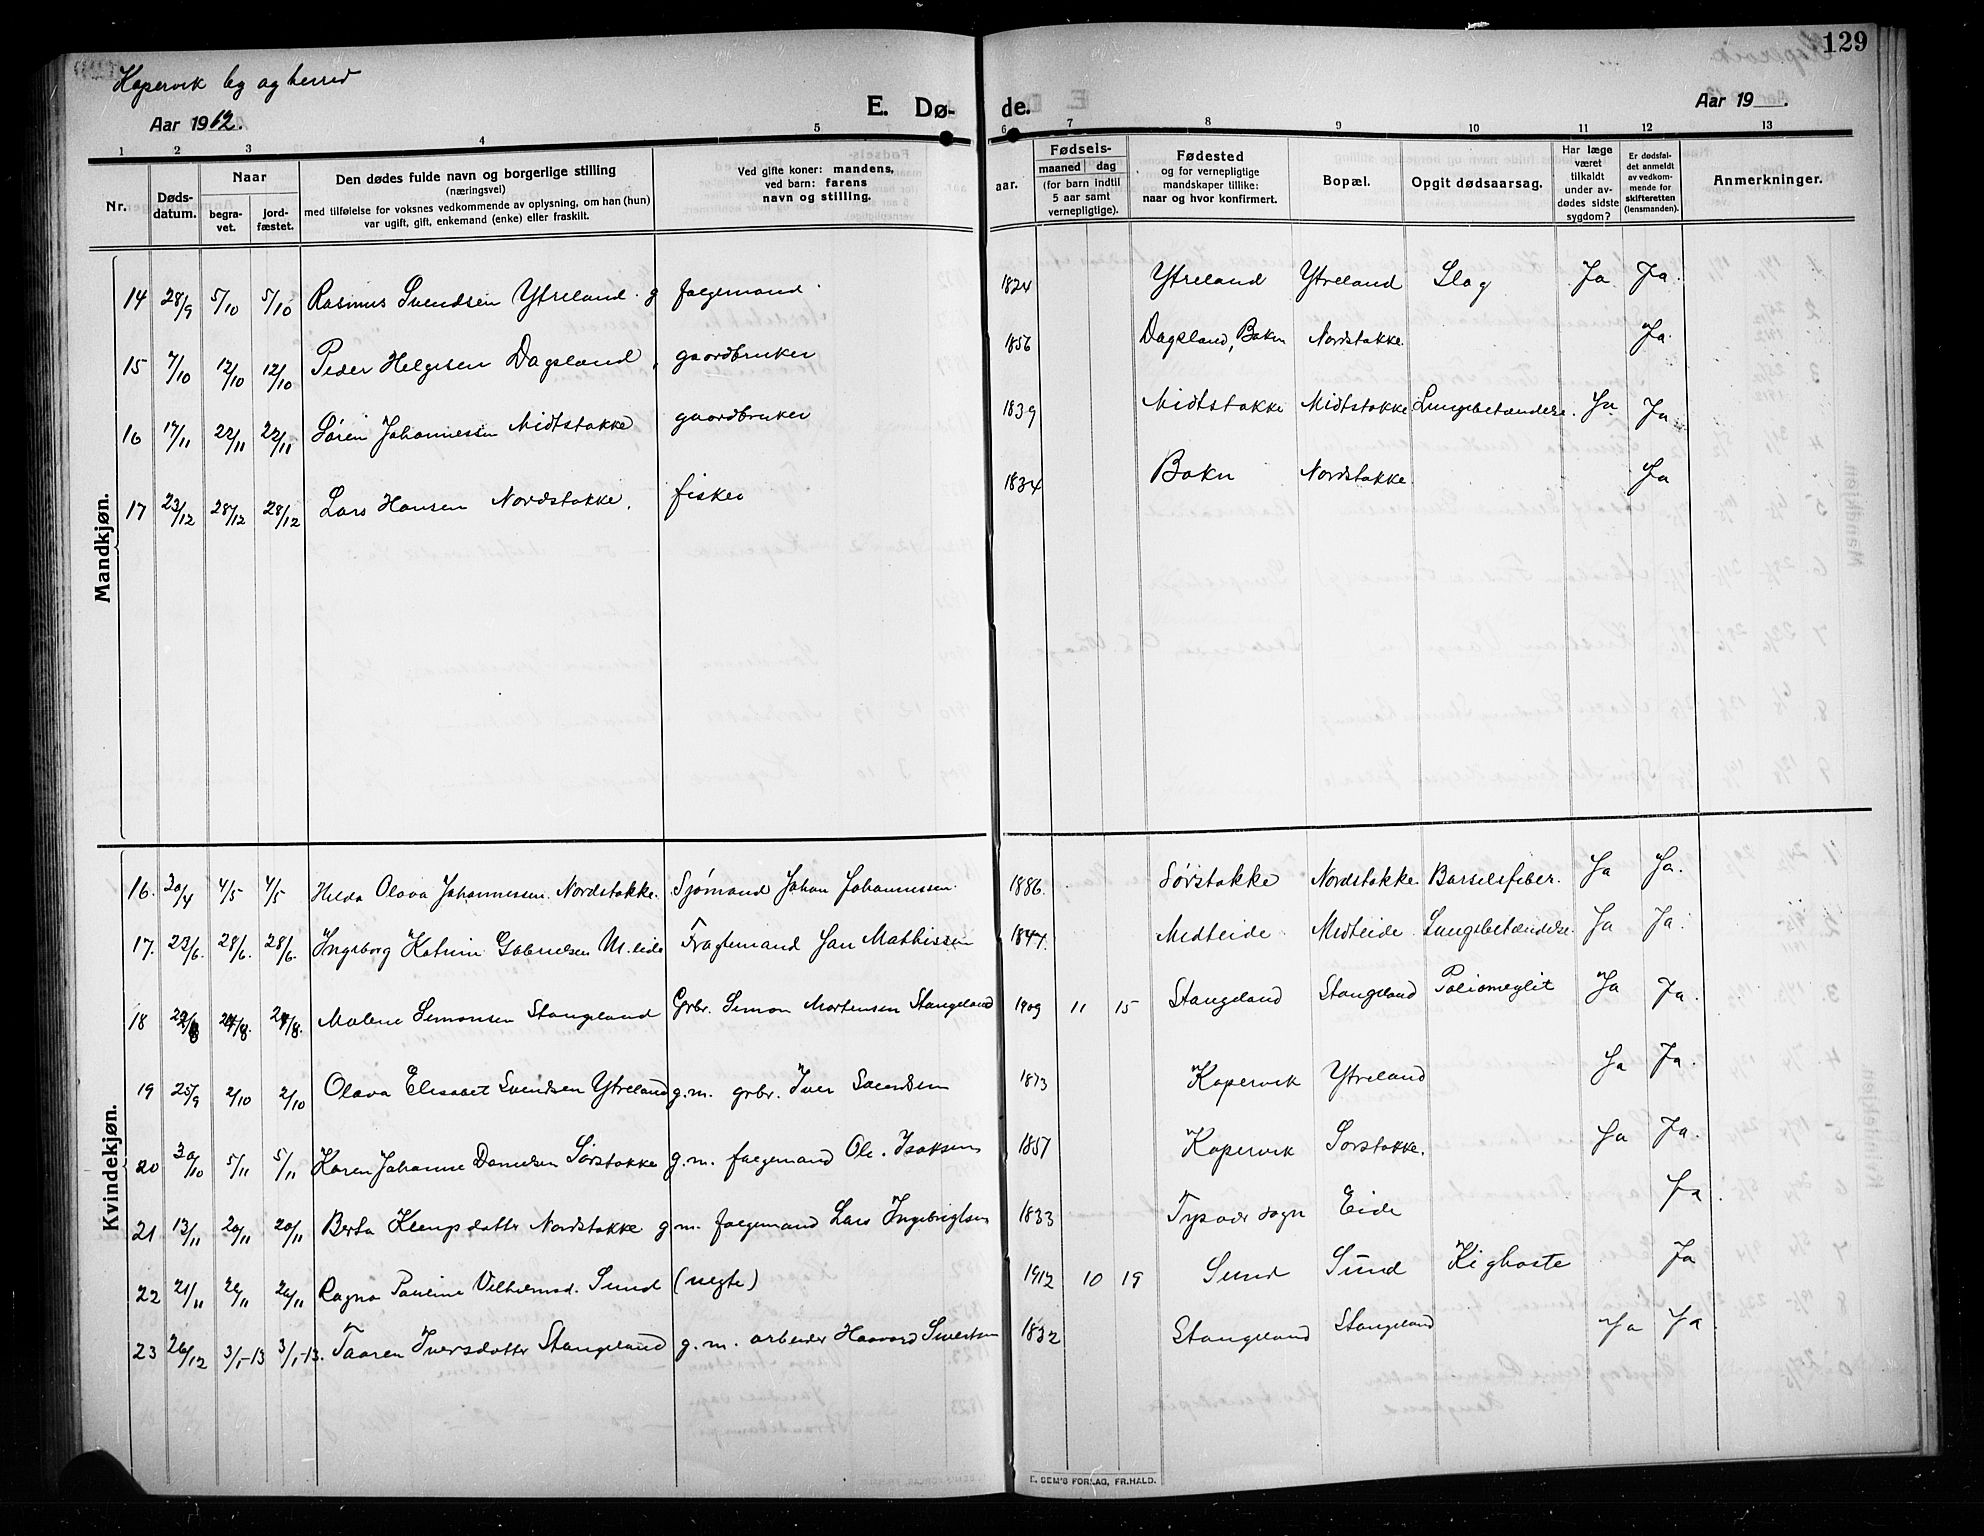 129
Kopervik by og herred
E. Dø- de.
Aar 1912. Aar 19 .
1 2 3 4 5 6 7 8 9 10 11 12 13
Nr. Døds-datum. Naar begra-vet. jord-fæstet. Den dødes fulde navn og borgerlige stilling (næringsvei) med tilføielse for voksnes vedkommende av oplysning, om han (hun) var ugift, gift, enkemand (enke) eller fraskilt. Ved gifte koner: mandens, ved barn: farens navn og stilling. aar. Fødsels- maaned dag (for barn indtil 5 aar samt vernepligtige). Fødested og for vernepligtige mandskaper tillike: naar og hvor konfirmert. Bopæl. Opgit dødsaarsag. Har læge været tilkaldt under av-dødes sidste sygdom? Er dødsfal-det anmeldt av vedkom-mende for skifteretten (lensmanden). Anmerkninger.
Mandkjøn.
14 28/9 5/10 5/10 Rasmus Svendsen Ytreland. g folgemand. 1824 Ytreland Ytreland Slag Ja Ja.
15 7/10 12/10 12/10 Peder Helgesen Dagsland, gaardbruker 1856 Dagsland, Bokn Nordstokke Ja.
16 17/11 22/11 22/11 Søren Johannessen Midtstokke gaardbruker 1839 Midtstokke Midtstokke Lungebetændelse. Ja Ja.
17 23/12 28/12 28/12 Lars Hansen Nordstokke. fisker 1834 Bokn Nordstokke Ja
Kvindekjøn.
16. 30/4 4/5 4/5 Hilda Olava Johannessen. Nordstokke. Sjømand Johan Johannessen. 1886. Sørstokke Nordstokke. Barselsfeber. Ja Ja.
17. 23/6. 28/6. 28/6. Ingeborg Katrine Gabrielsen M.eide Fragtemand Jan Mathissen 1844. Medeide Medeide Lungebetændelse Ja Ja.
18 /8 /8. /8. Malene Simonsen Stangeland Grbr. Simon Mortensen Stangeland 1909 11 15 Stangeland Stangeland Poliomeylit Ja Ja.
19 25/9 2/10 2/10 Olava Elisabet Svendsen Ytreland g.m. grbr. Iver Svendsen 1873 Kopervik Ytreland Ja Ja.
20 30/10 5/11 5/11 Karen Johanne Danielsen Sørstokke g.m. folgemand Ole Isaksen 1857 Kopervik Sørstokke. Ja Ja.
21 13/11 20/11 20/11 Berta Klempsdatter Nordstokke g.m. folgemand Lars Ingebrigtsen 1833 Tysvær sogn Eide Ja.
22 21/11 26/11 26/11 Ragna Pauline Vilhelmsd. Sund (uegte) 1912 10 19 Sund Sund Kighoste Ja
23 26/12 3/1-13 3/1-13. Taaren Iversdatter Stangeland g.m. arbeider Haavard Sivertsen 1832 Stangeland Stangeland Ja Ja.
E. SEM'S FORLAG, FR.HALD.